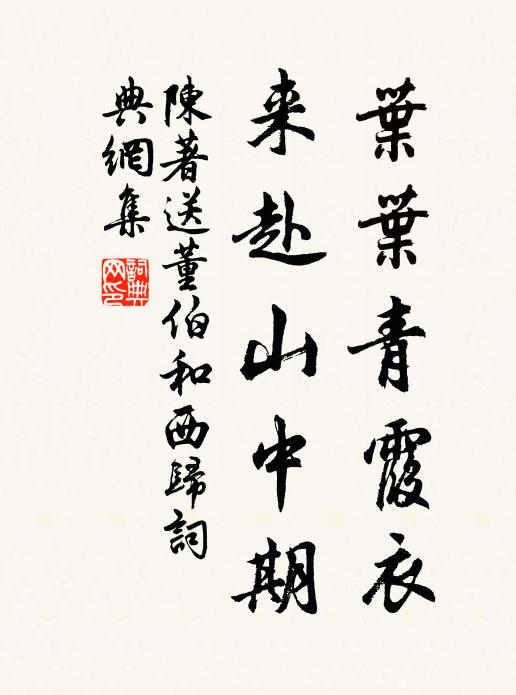 葉葉青霞衣
来赴山中期
陳著送董伯和西歸詞
典網集
詞典
网印